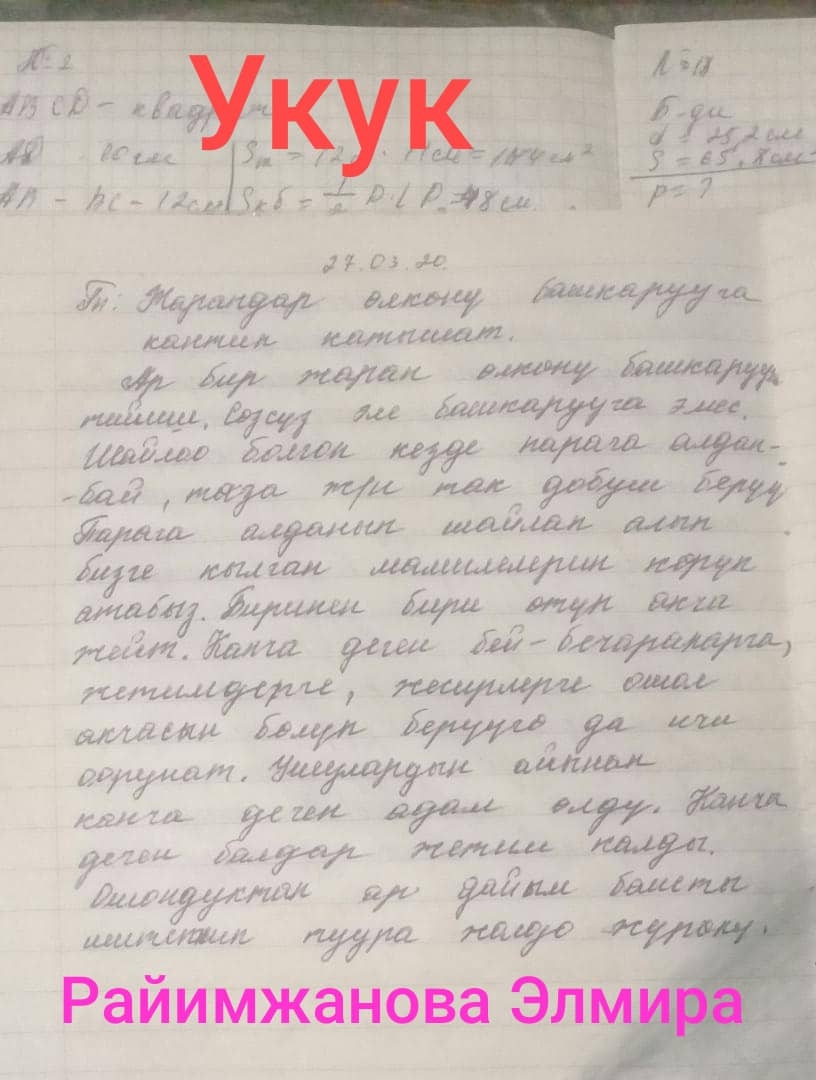 № 2
Укук
ABCD - квадрат
= 12см · = 144 см²
AB - BC - 12см Sкб = 1/2 P · L P = 48 см
Б-ди
d = 25,2 см
S = 65,
P = ?
27.03.20.
Тп: Жарандар олкону башкарууга
кантип катышат.
Ар бир жаран олкону башкаруу
тийиш. Созсуз эле башкарууга эмес.
Шайлоо болгон кезде парага алдан-
-бай, таза ж/н так добуш беруу
Парага алданып шайлап алып
бизге кылган мамилелерин коруп
атабыз. Биринен бири отуп акча
жейт. Канча деген бей-бечараларга,
жетимдерге, жесирлерге ошол
акчасын болуп берууго да ичи
оорунат. Ушулардын айынан
канча деген адам олду. Канча
деген балдар жетим калды.
Ошондуктан ар дайым башты
иштетип туура жолдо журолу.
Райимжанова Элмира